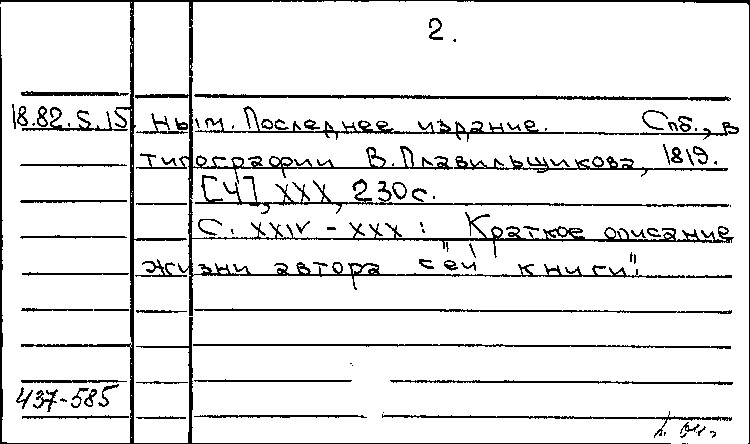 2.
18.82.5.15. ным. Последнее издание. Спб., в
типографии В. Плавильщикова, 1819.
[4], XXX, 230 с.
С. XXIV - XXX: Краткое описание
жизни автора "сей книги".
437-585